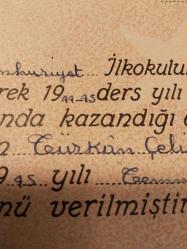 mhuriyet.... İlkokulu
rek 1944-45 ders yılı
nda kazandığı
n Türkân Çel
9 45 yılı Temm
nü verilmiştir